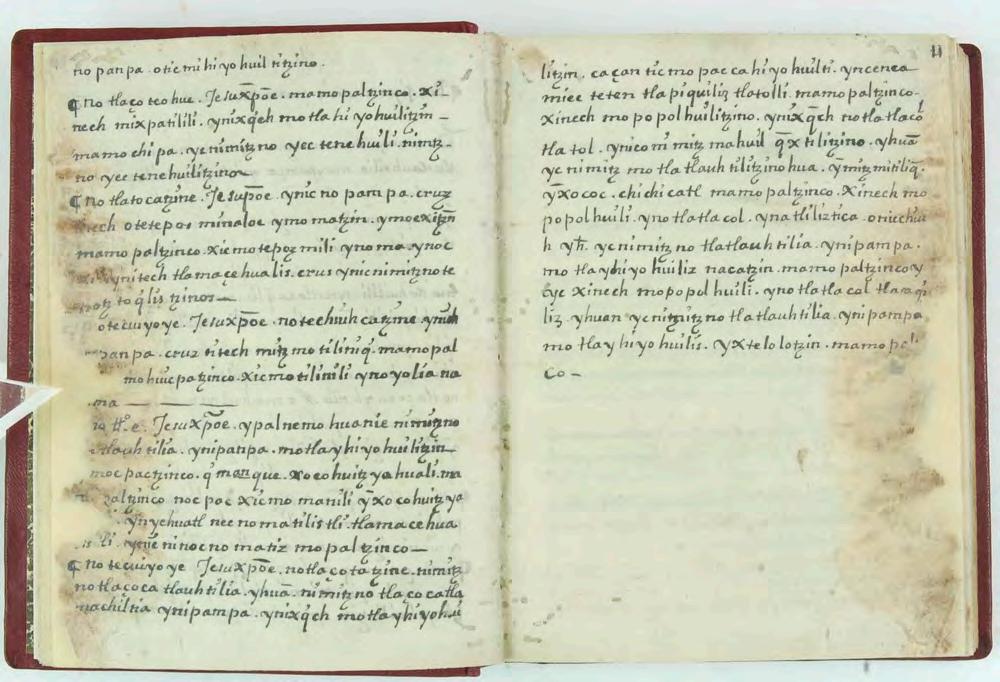 no panpa . otic mi hi yo huil titzino .
¶ no tlaço teo hue . Jesuxp̄oe . mamo paltzinco . xi_
nech mixpatilili . ynixq̄ch mo tla hi yo huilitzin _
mamo chi pa . yc nimitz no yec tene huili . nimtz_
no yec tene huilitzino_
¶ no tlato catzine . Jesup̄oe . ynic no pam pa . cruz
otetepos minaloc ymo matzin . ymo
mamo paltzinco . xicmo tepoz mili yno ma . ynoc
ynitech tlamaçehualis . crus ynic nimitz no te
to q̄lis tzinos_
otecuiyoye . Jesuxp̄oe . notechiuh catzine
pan pa . cruz titech mitz mo tiliniq̄ . mamo pal
mo huic pa tzinco . xicmo tilinili y no yo lia na
ma
e . Jesuxp̄oe . ypal nemo huanie nimitzno
tlauh tilia . ynipanpa . motla yhi yo hui litzin_
moc pactzinco . q̄ man que . xo co huitz ya huali . ma
paltzinco noc pac xicmo manili ȳxo co huitz ya
yn yehuatl nec no matilistli . tlamacehua
ninocno matiz mo pal tzinco_
¶ no tecuiyo ye Jesuxp̄oe . notlaço ta tzine . nimitz
notlaço ca tlauh tilia . yhuā . nimitz no tlaço catla
machiltia ynipam pa . ynixq̄ch mo tla yhi yo hui
11
litzin . ca çan tic mo pac ca hi yo huilti . yn cenca
miec teten tla pi quiliz tlatolli . mamo paltzinco .
xinech mo po pol huilitzino . ynixq̄ch no tla tlaco
tla tol . ynic o ni mitz ma huil q̄x tilitzino . yhuā
yc ni mitz mo tla tlauh tilitzino hua . ȳmitz mitiliq̄ .
ȳxo coc . chi chi catl mamo paltzinco . xinech mo
po pol huili . yno tla tla col . yna tli liztica . onicchiu
h . yc nimitz no tlatlauh tilia . yni pam pa .
mo tla yhi yo hui liz nacatzin . mamo paltzinco y
xinech mopopol huili . yno tla tla col tla
liz . yhuan yc nitzitz no tla tlauh tilia . yni pampa
mo tla y hi yo huilis . yx telo lotzin . mamo pal
co _